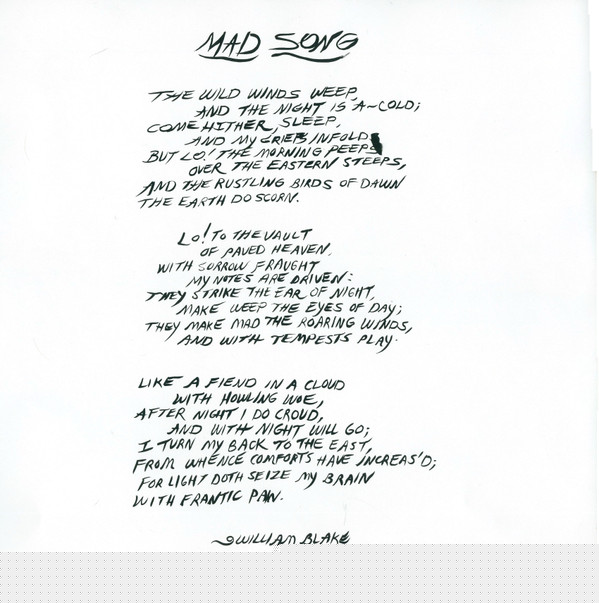 MAD SONG
THE WILD WINDS WEEP,
AND THE NIGHT IS A~COLD;
COME HITHER, SLEEP,
AND MY GRIEFS INFOLD
BUT LO! THE MORNING PEEPS
OVER THE EASTERN STEEPS,
AND THE RUSTLING BIRDS OF DAWN
THE EARTH DO SCORN.
LO! TO THE VAULT
OF PAVED HEAVEN,
WITH SORROW FRAUGHT
MY NOTES ARE DRIVEN:
THEY STRIKE THE EAR OF NIGHT,
MAKE WEEP THE EYES OF DAY;
THEY MAKE MAD THE ROARING WINDS,
AND WITH TEMPESTS PLAY.
LIKE A FIEND IN A CLOUD
WITH HOWLING WOE,
AFTER NIGHT I DO CROUD,
AND WITH NIGHT WILL GO;
I TURN MY BACK TO THE EAST,
FROM WHENCE COMFORTS HAVE INCREAS'D;
FOR LIGHT DOTH SEIZE MY BRAIN
WITH FRANTIC PAW.
~WILLIAM BLAKE